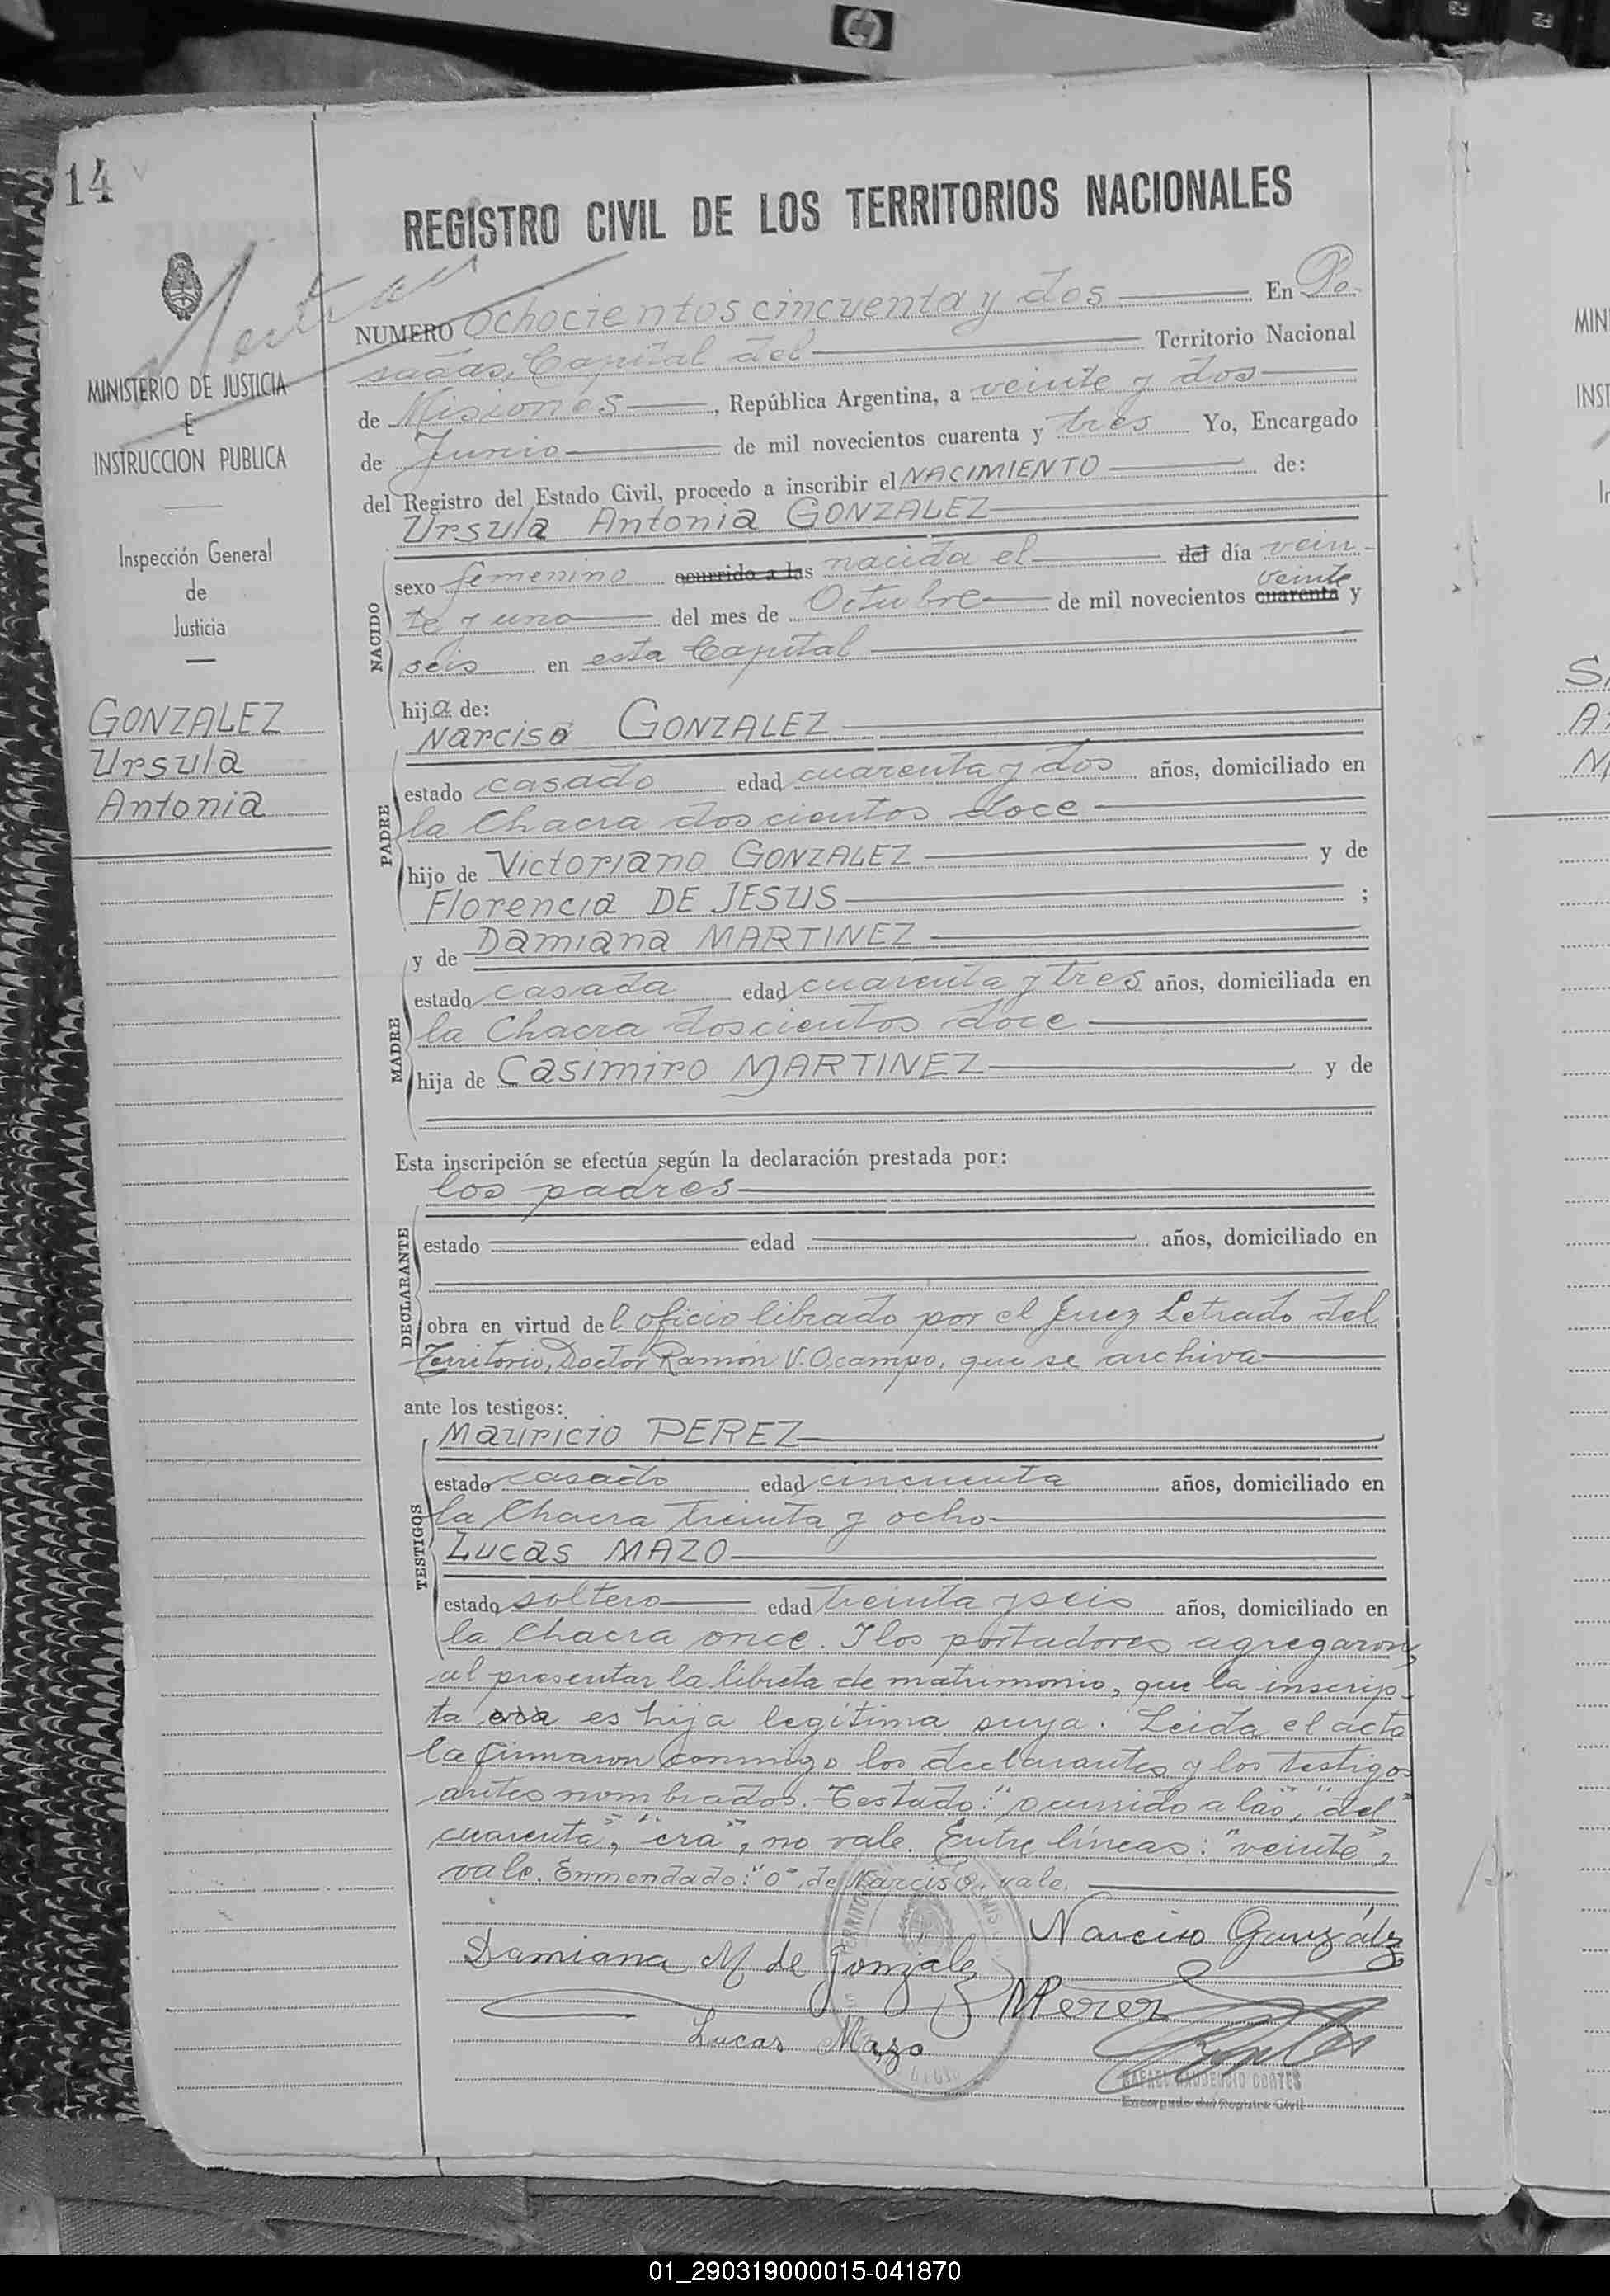 hp
F3
F2
14
REGISTRO CIVIL DE LOS TERRITORIOS NACIONALES
MINISTERIO DE JUSTICIA
E
INSTRUCCION PUBLICA
Inspección General
de
Justicia
GONZALEZ
Ursula
Antonia
NUMERO Ochocientos cincuenta y dos En Po-
sadas, Capital del Territorio Nacional
de Misiones, República Argentina, a veinte y dos
de Junio de mil novecientos cuarenta y tres Yo, Encargado
del Registro del Estado Civil, procedo a inscribir el NACIMIENTO de:
Ursula Antonia GONZALEZ
NACIDO
sexo femenino ocurrido a las nacida el del día vein-
veinte
te y uno del mes de Octubre de mil novecientos cuarenta y
seis en esta Capital
hija de:
Narciso GONZALEZ
PADRE
estado casado edad cuarenta y dos años, domiciliado en
la Chacra doscientos doce
hijo de Victoriano GONZALEZ y de
Florencia DE JESUS ;
y de Damiana MARTINEZ
MADRE
estado casada edad cuarenta y tres años, domiciliada en
la Chacra doscientos doce
hija de Casimiro MARTINEZ y de
Esta inscripción se efectúa según la declaración prestada por:
los padres
DECLARANTE
estado edad años, domiciliado en
obra en virtud del oficio librado por el Juez Letrado del
Territorio, Doctor Ramón V. Ocampo, que se archiva
ante los testigos:
Mauricio PEREZ
TESTIGOS
estado casado edad cincuenta años, domiciliado en
la Chacra treinta y ocho
Lucas MAZO
estado soltero edad treinta y seis años, domiciliado en
la Chacra once. Y los portadores agregaron,
al presentar la libreta de matrimonio, que la inscrip-
ta era es hija legítima suya. Leida el acta
la firmaron conmigo los declarantes y los testigos
antes nombrados. Testado: "ocurrido a las", "del"
cuarenta", "era", no vale. Entre líneas: "veinte",
vale. Enmendado: "o" de Narciso, vale.
Narciso González
Damiana M de Gonzalez
MPerez
Lucas Mazo
RAFAEL GAUDENCIO CORTES
Encargado del Registro Civil
MIN
INST
01_290319000015-041870